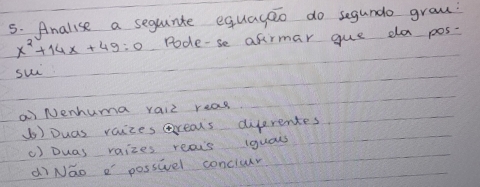 5. Analise a seguinte equação do segundo grau:
x² + 14x + 49 = 0. Pode-se afirmar que ela pos-
sui:
a) Nenhuma raiz real.
b) Duas raízes reais diferentes.
c) Duas raízes reais iguais
d) Não é possível concluir.